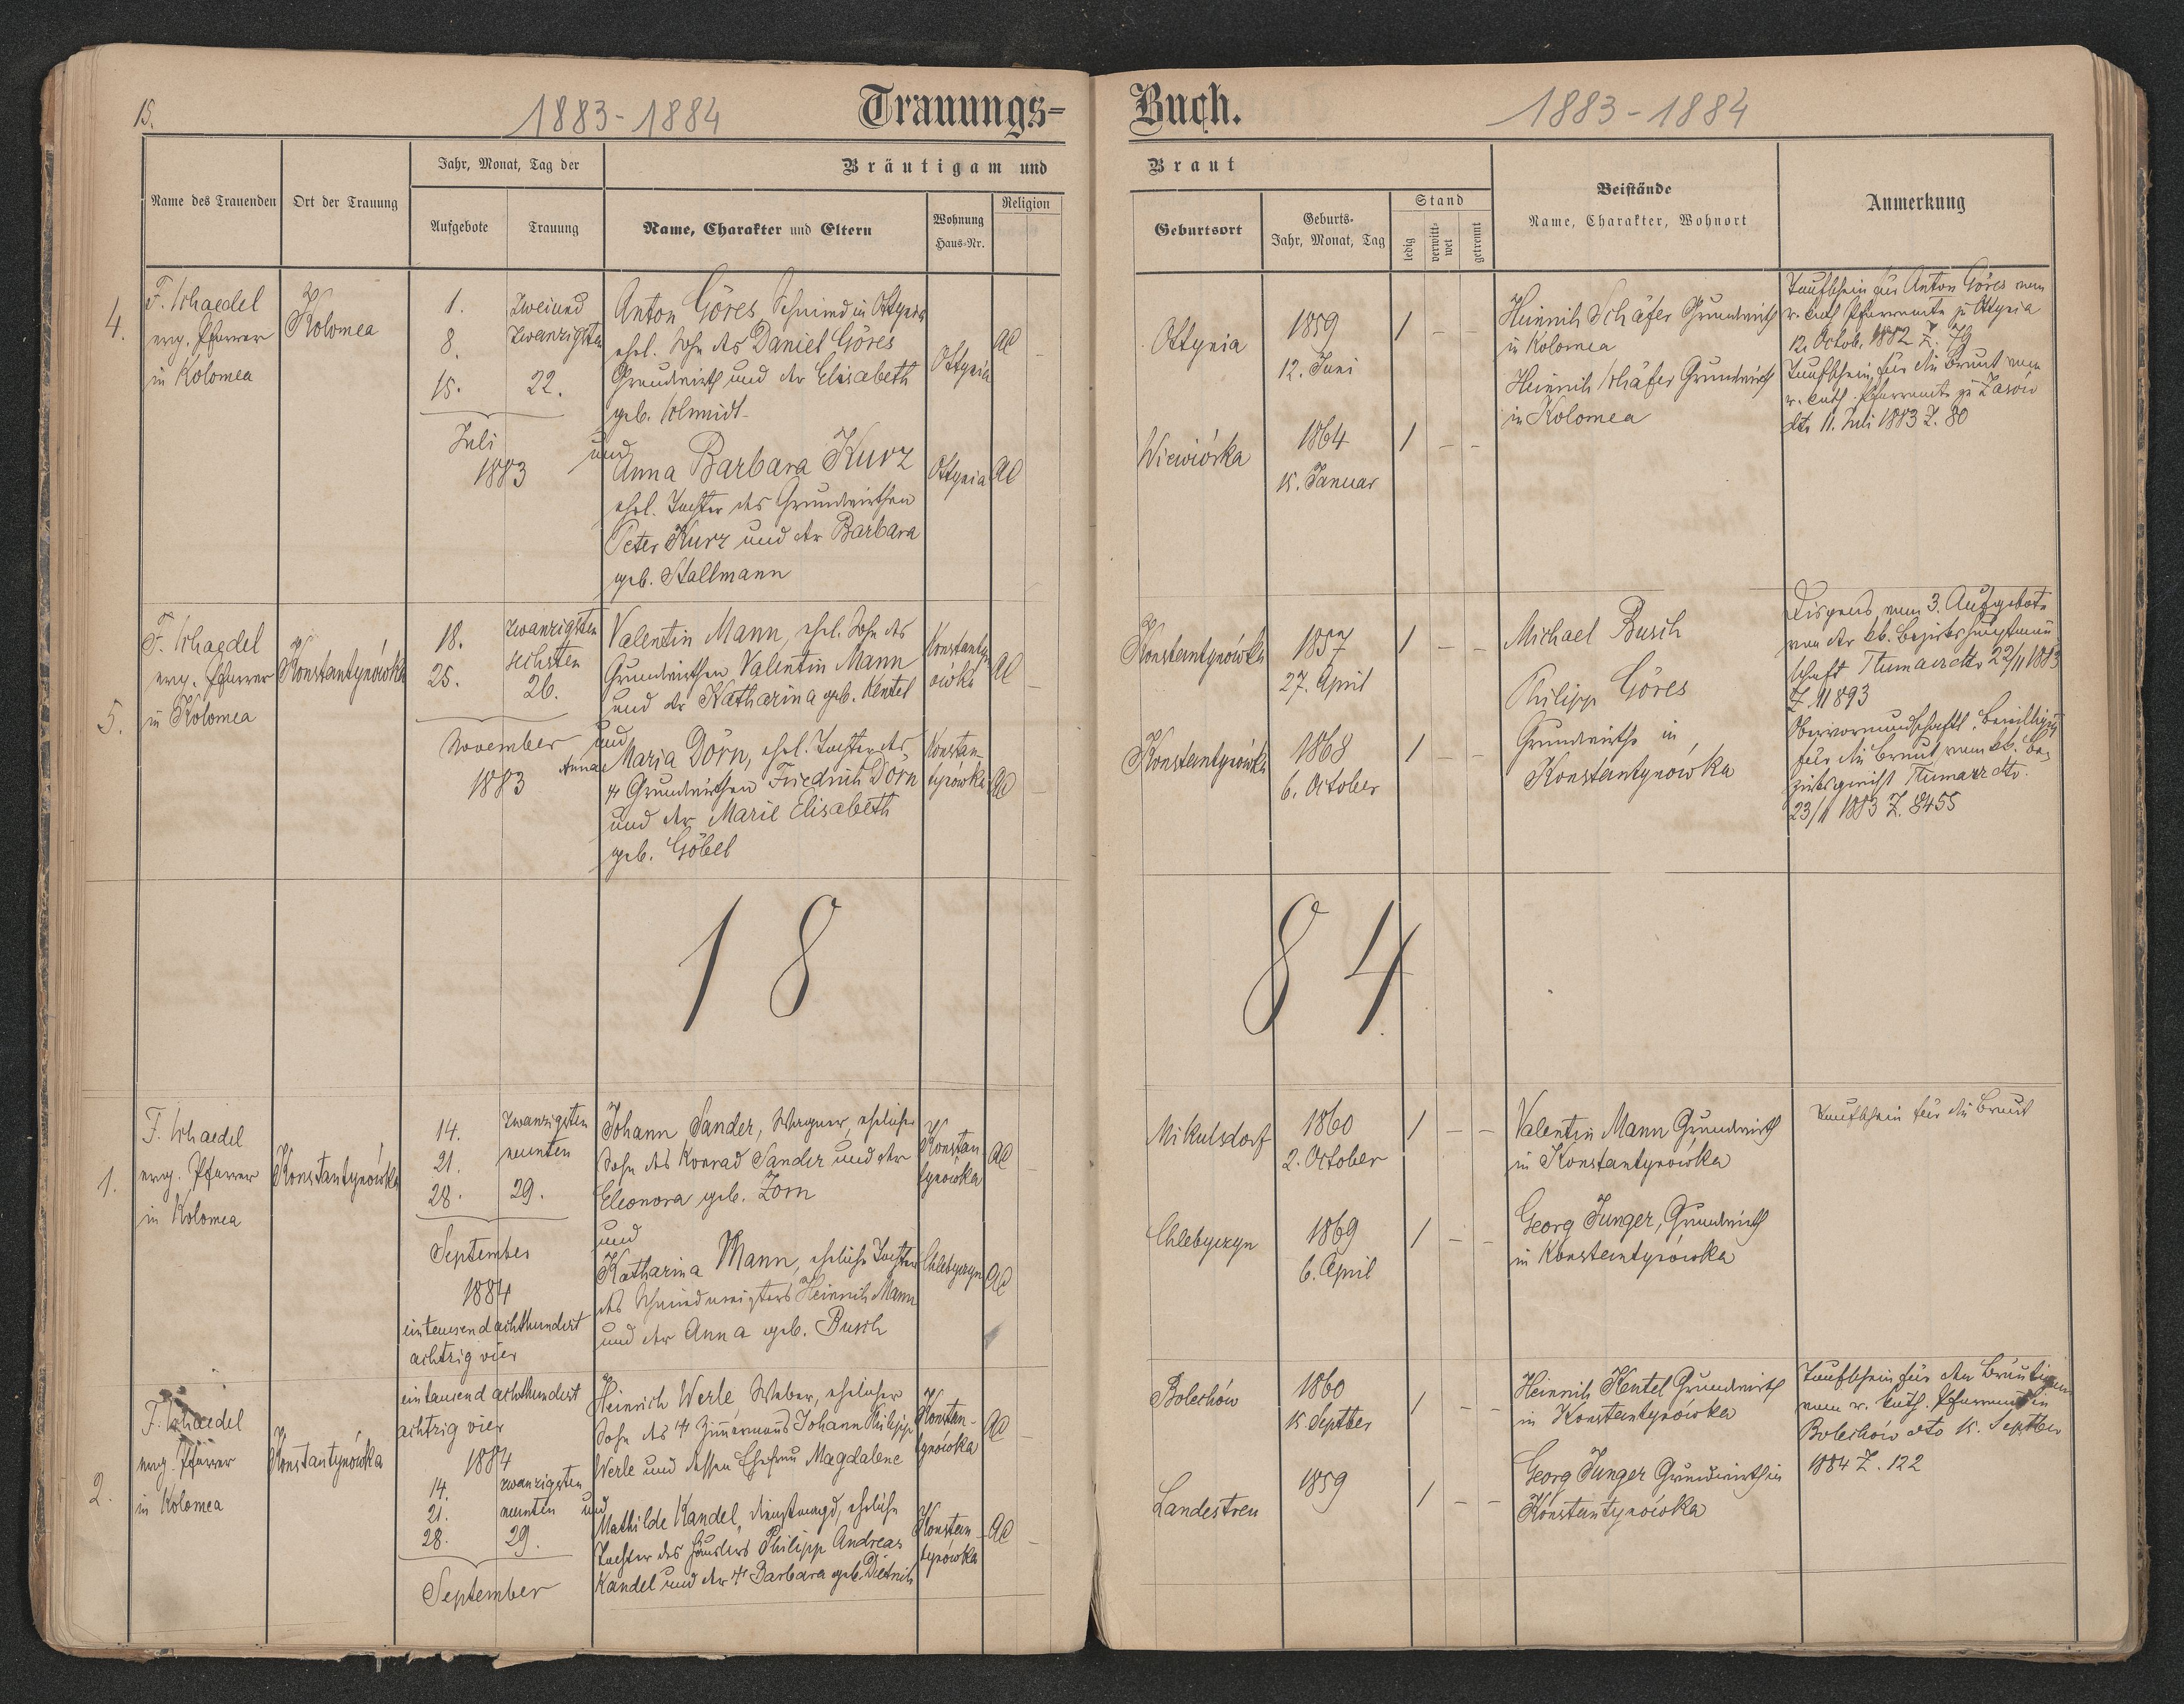 15.
1883-1884
Trauungs-
Name des Trauenden
Ort der Trauung
Jahr, Monat, Tag der
Aufgebote
Trauung
Bräutigam und
Name, Charakter und Eltern
Wohnung
Haus-Nr.
Religion
4.
F. Schaedel
evg. Pfarrer
in Kolomea
Kolomea
1.
8.
15.
Juli
1883
Zweiund
zwanzigsten
22.
Anton Göres, Schmied in Ottynia
ehel. Sohn des Daniel Göres
Grundwirth und der Elisabeth
geb. Schmidt
und
Anna Barbara Kurz
ehel. Tochter des Grundwirthen
Peter Kurz und der Barbara
geb. Stallmann
Ottynia
AC
Ottynia
AC
5.
F. Schaedel
evg. Pfarrer
in Kolomea
Konstantynówka
18.
25.
November
1883
zwanzigsten
sechsten
26.
Valentin Mann, ehel. Sohn des
Grundwirthen Valentin Mann
und der Katharina geb. Kentel
und
Anna Maria Dörn, ehel. Tochter des
† Grundwirthen Friedrich Dörn
und der Marie Elisabeth
geb. Göbel
Konstantyn
ówka
AC
Konstan
tynówka
AC
18
1.
F. Schaedel
evg. Pfarrer
in Kolomea
Konstantynówka
14.
21.
28.
September
1884
eintausend achthundert
achtzig vier
zwanzigsten
neunten
29.
Johann Sander, Wagner, ehelicher
Sohn des Konrad Sander und der
Eleonora geb. Zorn
und
Katharina Mann, eheliche Tochter
des Schmiedmeisters Heinrich Mann
und der Anna geb. Busch
Konstan
tynówka
AC
Chlebyczyn
AC
2.
F. Schaedel
evg. Pfarrer
in Kolomea
Konstantynówka
eintausend achthundert
achtzig vier
1884
14.
21.
28.
September
zwanzigsten
neunten
29.
Heinrich Werle, Weber, ehelicher
Sohn des † Zimmermanns Johann Philipp
Werle und dessen Ehefrau Magdalene
und
Mathilde Kandel, Dienstmagd, eheliche
Tochter des Häuslers Philipp Andreas
Kandel und der † Barbara geb. Dietrich
Konstan-
tynówka
AC
Konstan-
tynówka
AC
Buch.
1883-1884
Braut
Geburtsort
Geburts-
Jahr, Monat, Tag
Stand
ledig
verwitt-
wet
getrennt
Beistände
Name, Charakter, Wohnort
Anmerkung
Ottynia
1859
12. Juni
1 - -
Wiewiórka
1864
15. Januar
1 - -
Heinrich Schäfer Grundwirth
in Kolomea
Heinrich Schäfer Grundwirth
in Kolomea
Taufschein für Anton Göres vom
r. kath. Pfarramte zu Ottynia
12. Octob. 1882 Z. 79
Taufschein für die Braut vom
r. kath. Pfarramte zu Zasów
dto 11. Juli 1883 Z. 80
Konstantynówka
1857
27. April
1 - -
Konstantynówka
1868
6. October
1 - -
Michael Busch
Philipp Göres
Grundwirthe in
Konstantynówka
Dispens vom 3. Aufgebote
von der kk. Bezirkshauptmann
schaft Tłumacz dto 22/11 1883
Z. 11893
Obervormundschaftl. Bewilligung
für die Braut vom kk. Be-
zirksgericht Tłumacz dto.
23/11 1883 Z. 8455
84
Mikulsdorf
1860
2. October
1 - -
Chlebyczyn
1869
6. April
1 - -
Valentin Mann Grundwirth
in Konstantynówka
Georg Junger, Grundwirth
in Konstantynówka
Taufschein für die Braut
Bolechów
1860
15. Septber
1 - -
Landestreu
1859
1 - -
Heinrich Kentel Grundwirth
in Konstantynówka
Georg Junger Grundwirth in
Konstantynówka
Taufschein für den Bräutigam
vom r. kath. Pfarramt in
Bolechów dto 15. Septber
1884 Z. 122